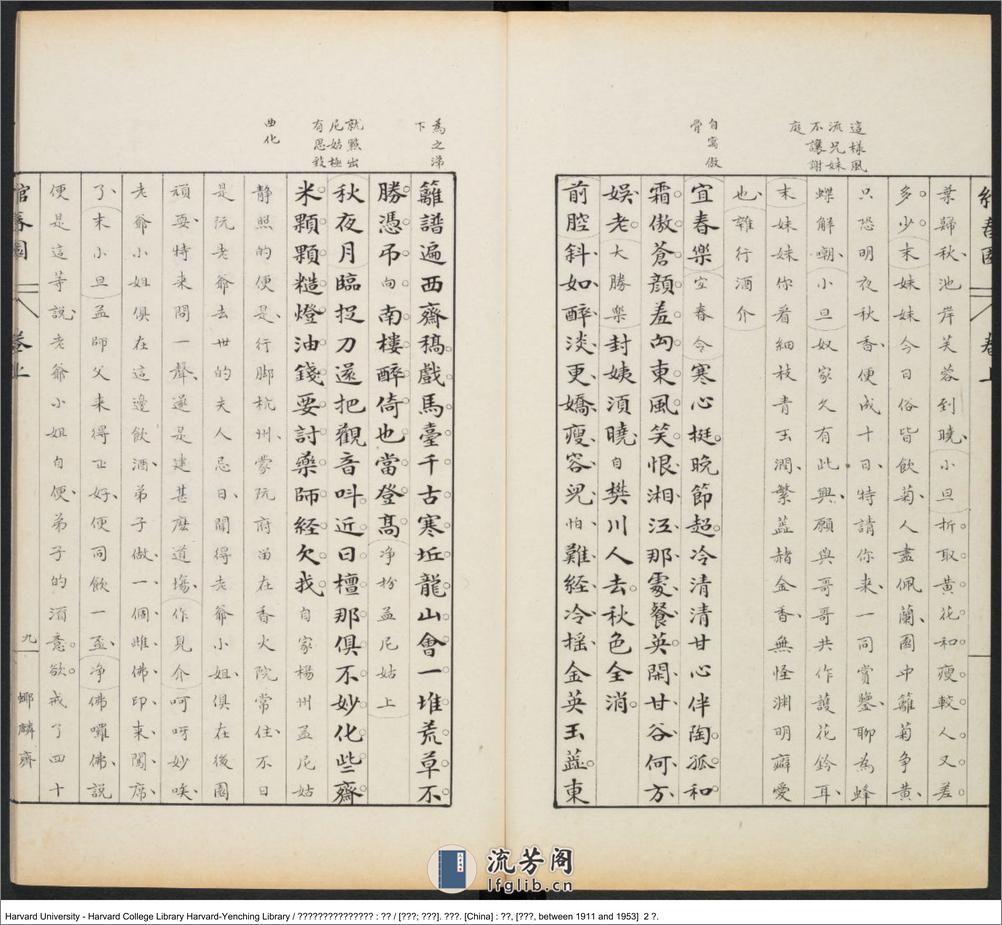 這樣風
流兄妹
不讓謝
庭
自寫傲
骨
葉歸秋池岸芙蓉到曉小旦折取黃花和瘦較人又差
多少末妹妹今日俗皆飲菊人盡佩蘭園中籬菊爭黃
只恐明夜秋香便成十日特請你來一同賞鑒聊為蜂
蝶解嘲小旦奴家久有此興願與哥哥共作護花鈴耳
末妹妹你看細枝青玉潤繁蕋赭金香無怪淵明癖愛
也雜行酒介
宜春樂宜春令寒心挺晚節超冷清清甘心伴陶孤和
霜傲蒼顏羞向東風笑恨湘江那處餐英閑甘谷何方
娛老大勝樂封姨須曉自樊川人去秋色全消
前腔斜如醉淡更嬌瘦容皃怕難経冷揺金英玉蕋東
為之涕
下
就㸃出
尼姑極
有思致
曲化
籬譜遍西齋稿戲馬臺千古寒坵龍山會一堆荒草不
勝憑弔向南樓醉倚也當登髙淨扮孟尼姑上
秋夜月臨捉刀還把觀音呌近日檀那俱不妙化些齋
米顆顆糙燈油錢要討藥師経欠我自家楊州孟尼姑
靜照的便是行脚杭州蒙阮府留在香火院常住不日
是阮老爺去世的夫人忌日聞得老爺小姐俱在後園
頑耍特来問一聲還是建甚麽道塲作見介呵呀妙唉
老爺小姐俱在這邊飲酒弟子做一個雌佛印来闖席
了末小旦孟師父来得正好便同飲一盃淨佛囉佛說
便是這等説老爺小姐自便弟子的酒意欲戒了四十
綰春園
卷上
九
螂麟齋
流芳阁
lfglib.cn
Harvard University - Harvard College Library Harvard-Yenching Library / ??????????????? : ?? / [???; ???]. ???. [China] : ??, [???, between 1911 and 1953] 2 ?.